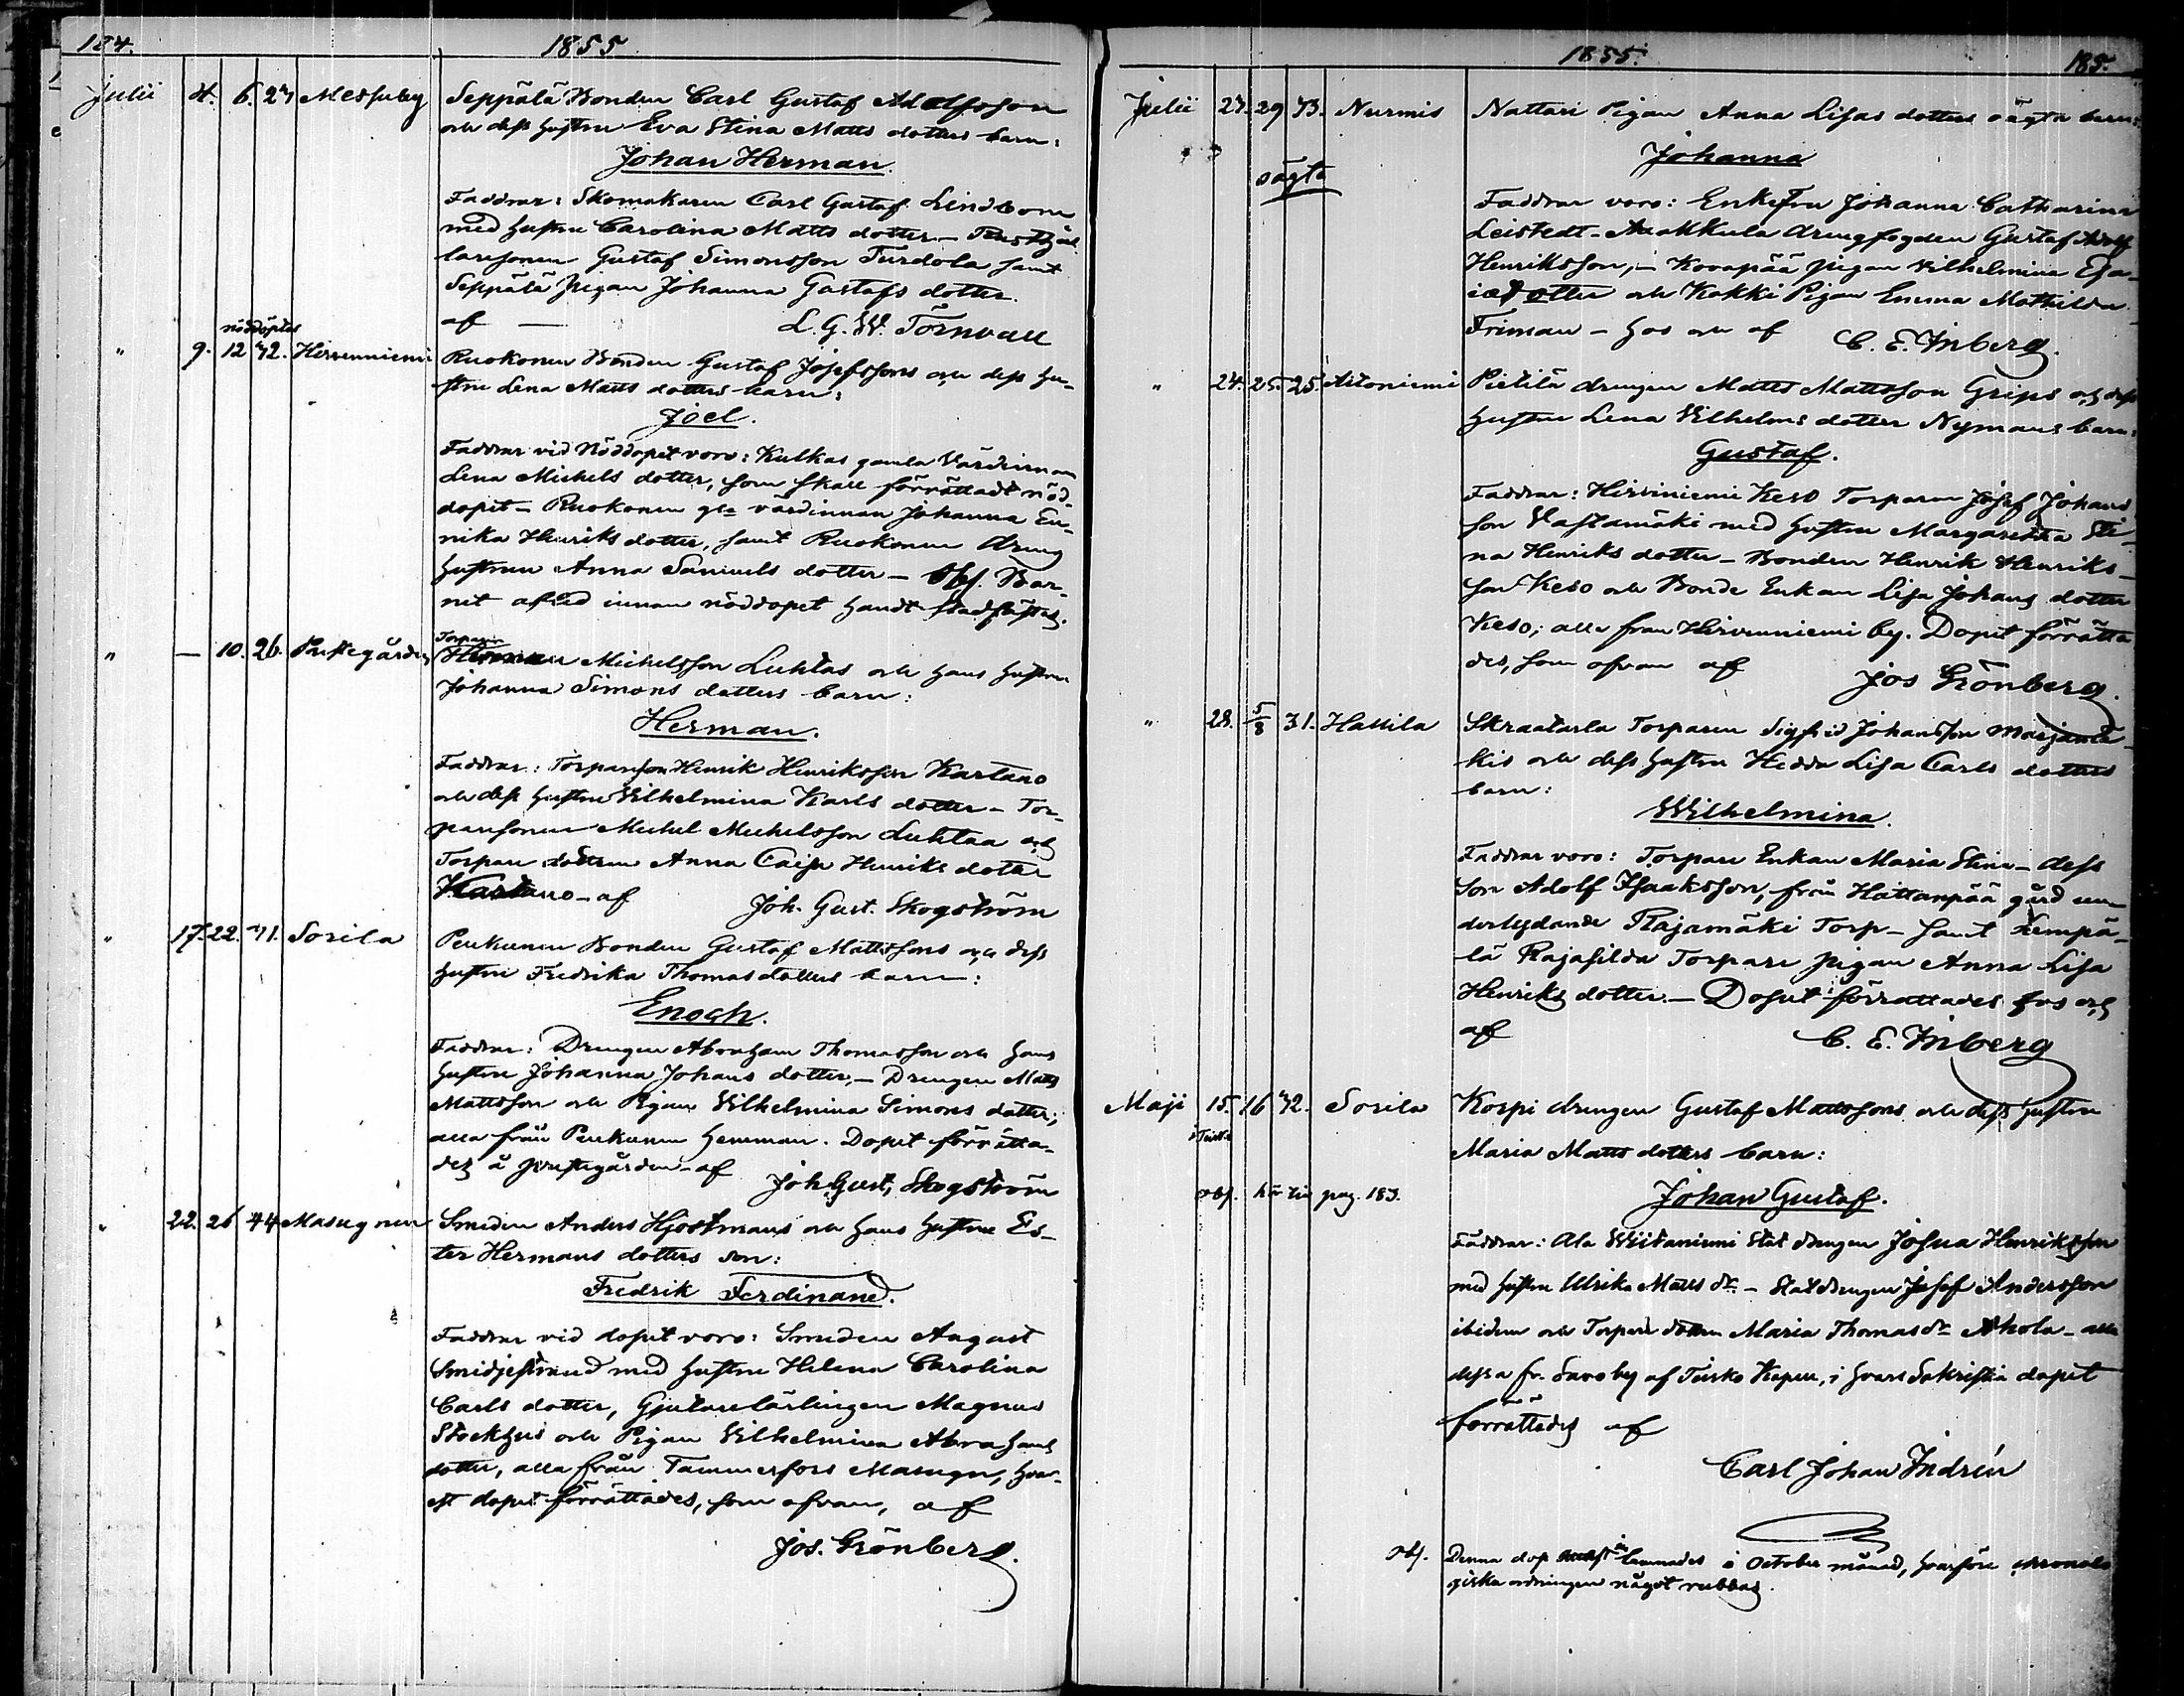 184. 1855
Julii 4. 6. 27 Messuby Seppälä Bonden Carl Gustaf Adolfsson
och dess hustru Eva Stina Matts dotters barn:
Johan Herman.
Faddrar: Skomakaren Carl Gustaf Lindbom
med hustru Carolina Matts dotter –
laresonen Gustaf Simonsson Turdola samt
Seppälä pigan Johanna Gustafs dotter.
af — L. G. W. Törnvall
nöddöptes
" 9. 12 42. Hirvenniemi Ruokonen Bonden Gustaf Josefssons och dess hu-
stru Lena Matts dotters barn:
Joel.
Faddrar vid Nöddopet voro: Kulkas gamla Värdinnan
Lena Michels dotter, som skall förrättadt nöd-
dopet – Ruokonen gla värdinnan Johanna En-
nika Henriks dotter, samt Ruokonen dreng
hustrun Anna Samuels dotter – Obs. Bar-
net afled innan nöddopet handt stadfästas.
" — 10. 26. Prestegården Torparen
Herman Michelsson Luhtas och hans hustru
Johanna Simons dotters barn:
Herman.
Faddrar: Torpareson Henrik Henriksson Kartano
och dess hustru Wilhelmina Karls dotter – Tor-
paresonen Michel Michelsson Luhtaa och
Torpare dottren Anna Caisa Henriks dotter
Kartano – af Joh. Gust. Skogström
" 17. 22. 41. Sorila Penkunen Bonden Gustaf Mattssons och dess
hustru Fredrika Thomas dotters barn:
Enoch.
Faddrar: Drengen Abraham Thomasson och hans
hustru Johanna Johans dotter, – Drengen Matts
Mattsson och Pigan Wilhelmina Simons dotter;
alla från Penkunen hemman. Dopet förrätta-
des å prestegården – af Joh. Gust. Skogström
" 22. 26 44 Masugnen Smeden Anders Hjortmans och hans hustru Es-
ter Hermans dotters son:
Fredrik Ferdinand.
Faddrar vid dopet voro: Smeden August
Smidjestrand med hustru Helena Carolina
Carls dotter, Gjutarelärlingen Magnus
Stockhus och Pigan Wilhelmina Abrahams
dotter, alla från Tammerfors Masugn, hvar-
est dopet förrättades, som ofvan, af
Jos. Grönberg.
1855. 185.
Julii 27. 29 43. Nurmis Nattari Pigan Anna Lisas dotters oägta barn:
oägta Johanna
Faddrar voro: Enkefru Johanna Catharina
Leistedt – Aakkula drengfogden Gustaf Adolf
Henriksson, – Kovapää pigan Wilhelmina Esa-
iæ dotter och Kakki Pigan Emma Mathilda
Friman – hos och af C. E. Inberg.
" 24. 25. 25 Aitoniemi Pietilä drengen Matts Mattsson Grips och dess
hustru Lena Wilhelms dotter Nymans barn:
Gustaf.
Faddrar: Hirviniemi Keso Torparen Josef Johans
son Vastamäki med hustru Margaretha Sti-
na Henriks dotter – Bonden Henrik Henriks-
son Keso och Bonde Enkan Lisa Johans dotter
Keso; alla från Hirvenniemi by. Dopet förrätta
des, som ofvan af Jos Grönberg.
" 28. 5/8 31. Hattila Skraatarla Torparen Sigfrid Johansson Marjamä-
kis och dess hustru Hedda Lisa Carls dotters
barn:
Wilhelmina.
Faddrar voro: Torpare Enkan Maria Stina – dess
Son Adolf Isaaksson, från Hattanpää gård un-
derlydande Rajamäki Torp – samt Lempä-
lä Rajasilda Torpare pigan Anna Lisa
Henriks dotter – Dopet förrättades hos och
af C. E. Inberg
Maji 15. 16 42. Sorila Korpi drengen Gustaf Mattssons och dess hustru
Maria Matts dotters barn:
obs. hör till pag. 183. Johan Gustaf.
Faddrar: Ala Wiitaniemi Stat drengen Josua Henriksson
med hustru Ulrika Matts dr. – Statdrengen Josef Andersson
ibidem och Torpare dottren Maria Thomas dr Ahola – alla
dessa fr. Savo by af Teisko Kapell, i hvars Sakristia dopet
förrättades af
Carl Johan Indrén
Obs. Denna dop lemnades i October månad, hvarföre chronolo
giska ordningen något rubbas.